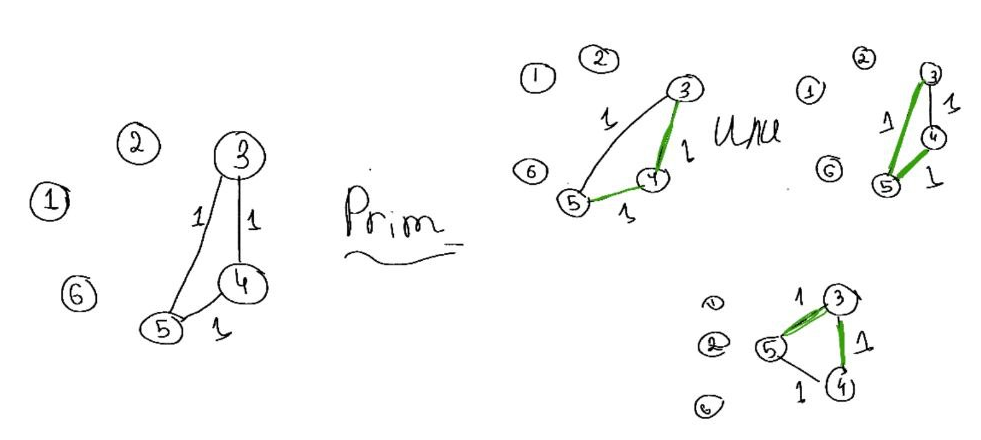 2
3
1
1 1
4
6
5
1
Prim
1
2
3
1
1
6
4
5
1
или
2
3
1
1
1
4
6
5
1
1
1
3
2
5
1
1
4
6